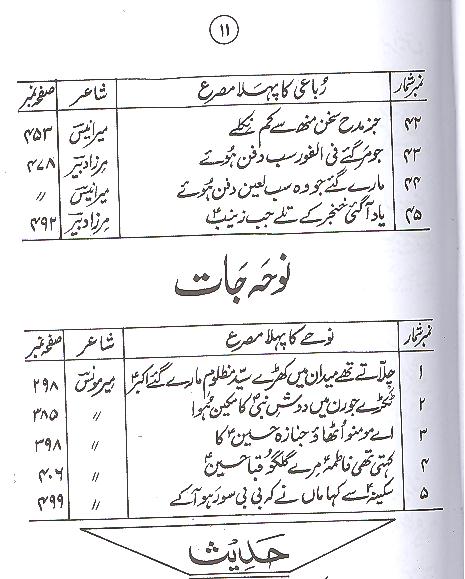 ۱۱
نمبر شمار رُباعی کا پہلا مصرع شاعر صفحہ نمبر
۴۲ جز مدحِ سخن منھ سے کم نکلے میر انیسؔ ۴۵۳
۴۳ جو مر گئے فی الفور سب دفن ہُوئے مرزا دبیرؔ ۴۷۸
۴۴ مارے گئے جو وہ سب لعین دفن ہُوئے میر انیسؔ 〃
۴۵ یاد آ گئی خنجر کے تلے جب زینبؑ مرزا دبیرؔ ۴۹۲
نوحہ جات
نمبر شمار نوحے کا پہلا مصرع شاعر صفحہ نمبر
۱ چلّاتے تھے میدان میں کھڑے سیّدِ مظلوم مارے گئے اکبرؑ میر مونسؔ ۲۹۸
۲ ٹکڑے جو رن میں دوشِ نبیؐ کا مکین ہُوا 〃 ۳۸۵
۳ اے مومنو اُٹھاؤ جنازہ حسینؑ کا 〃 ۳۹۸
۴ کہتی تھی فاطمہؑ مرے گلگوں قبا حسینؑ 〃 ۴۰۶
۵ سکینہؑ سے کہا ماں نے کہ بی بی سو رہو آ کے 〃 ۴۹۹
حدیث